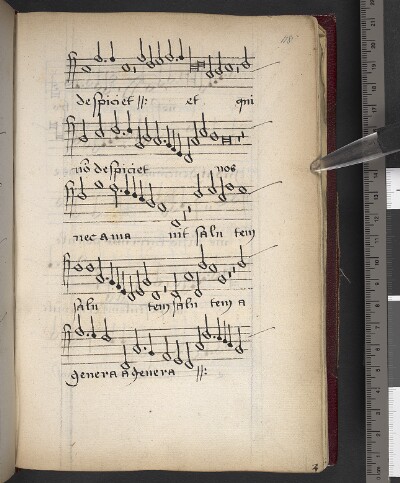 despiciet //: et qui
nō despiciet nos
nec ama int salu tem
salu tem salu tem a
genera a genera //: